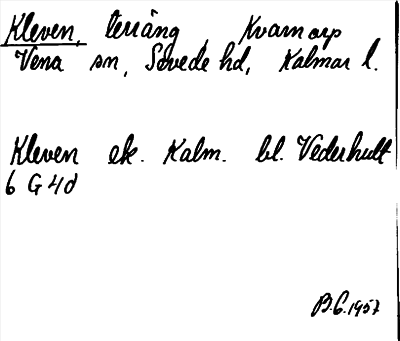 Kleven, terräng, Kvarnarp
Vena sn, Sevede hd, Kalmar l.
Kleven ek. Kalm. bl. Vederhult
6 G 4d
B.G. 1957